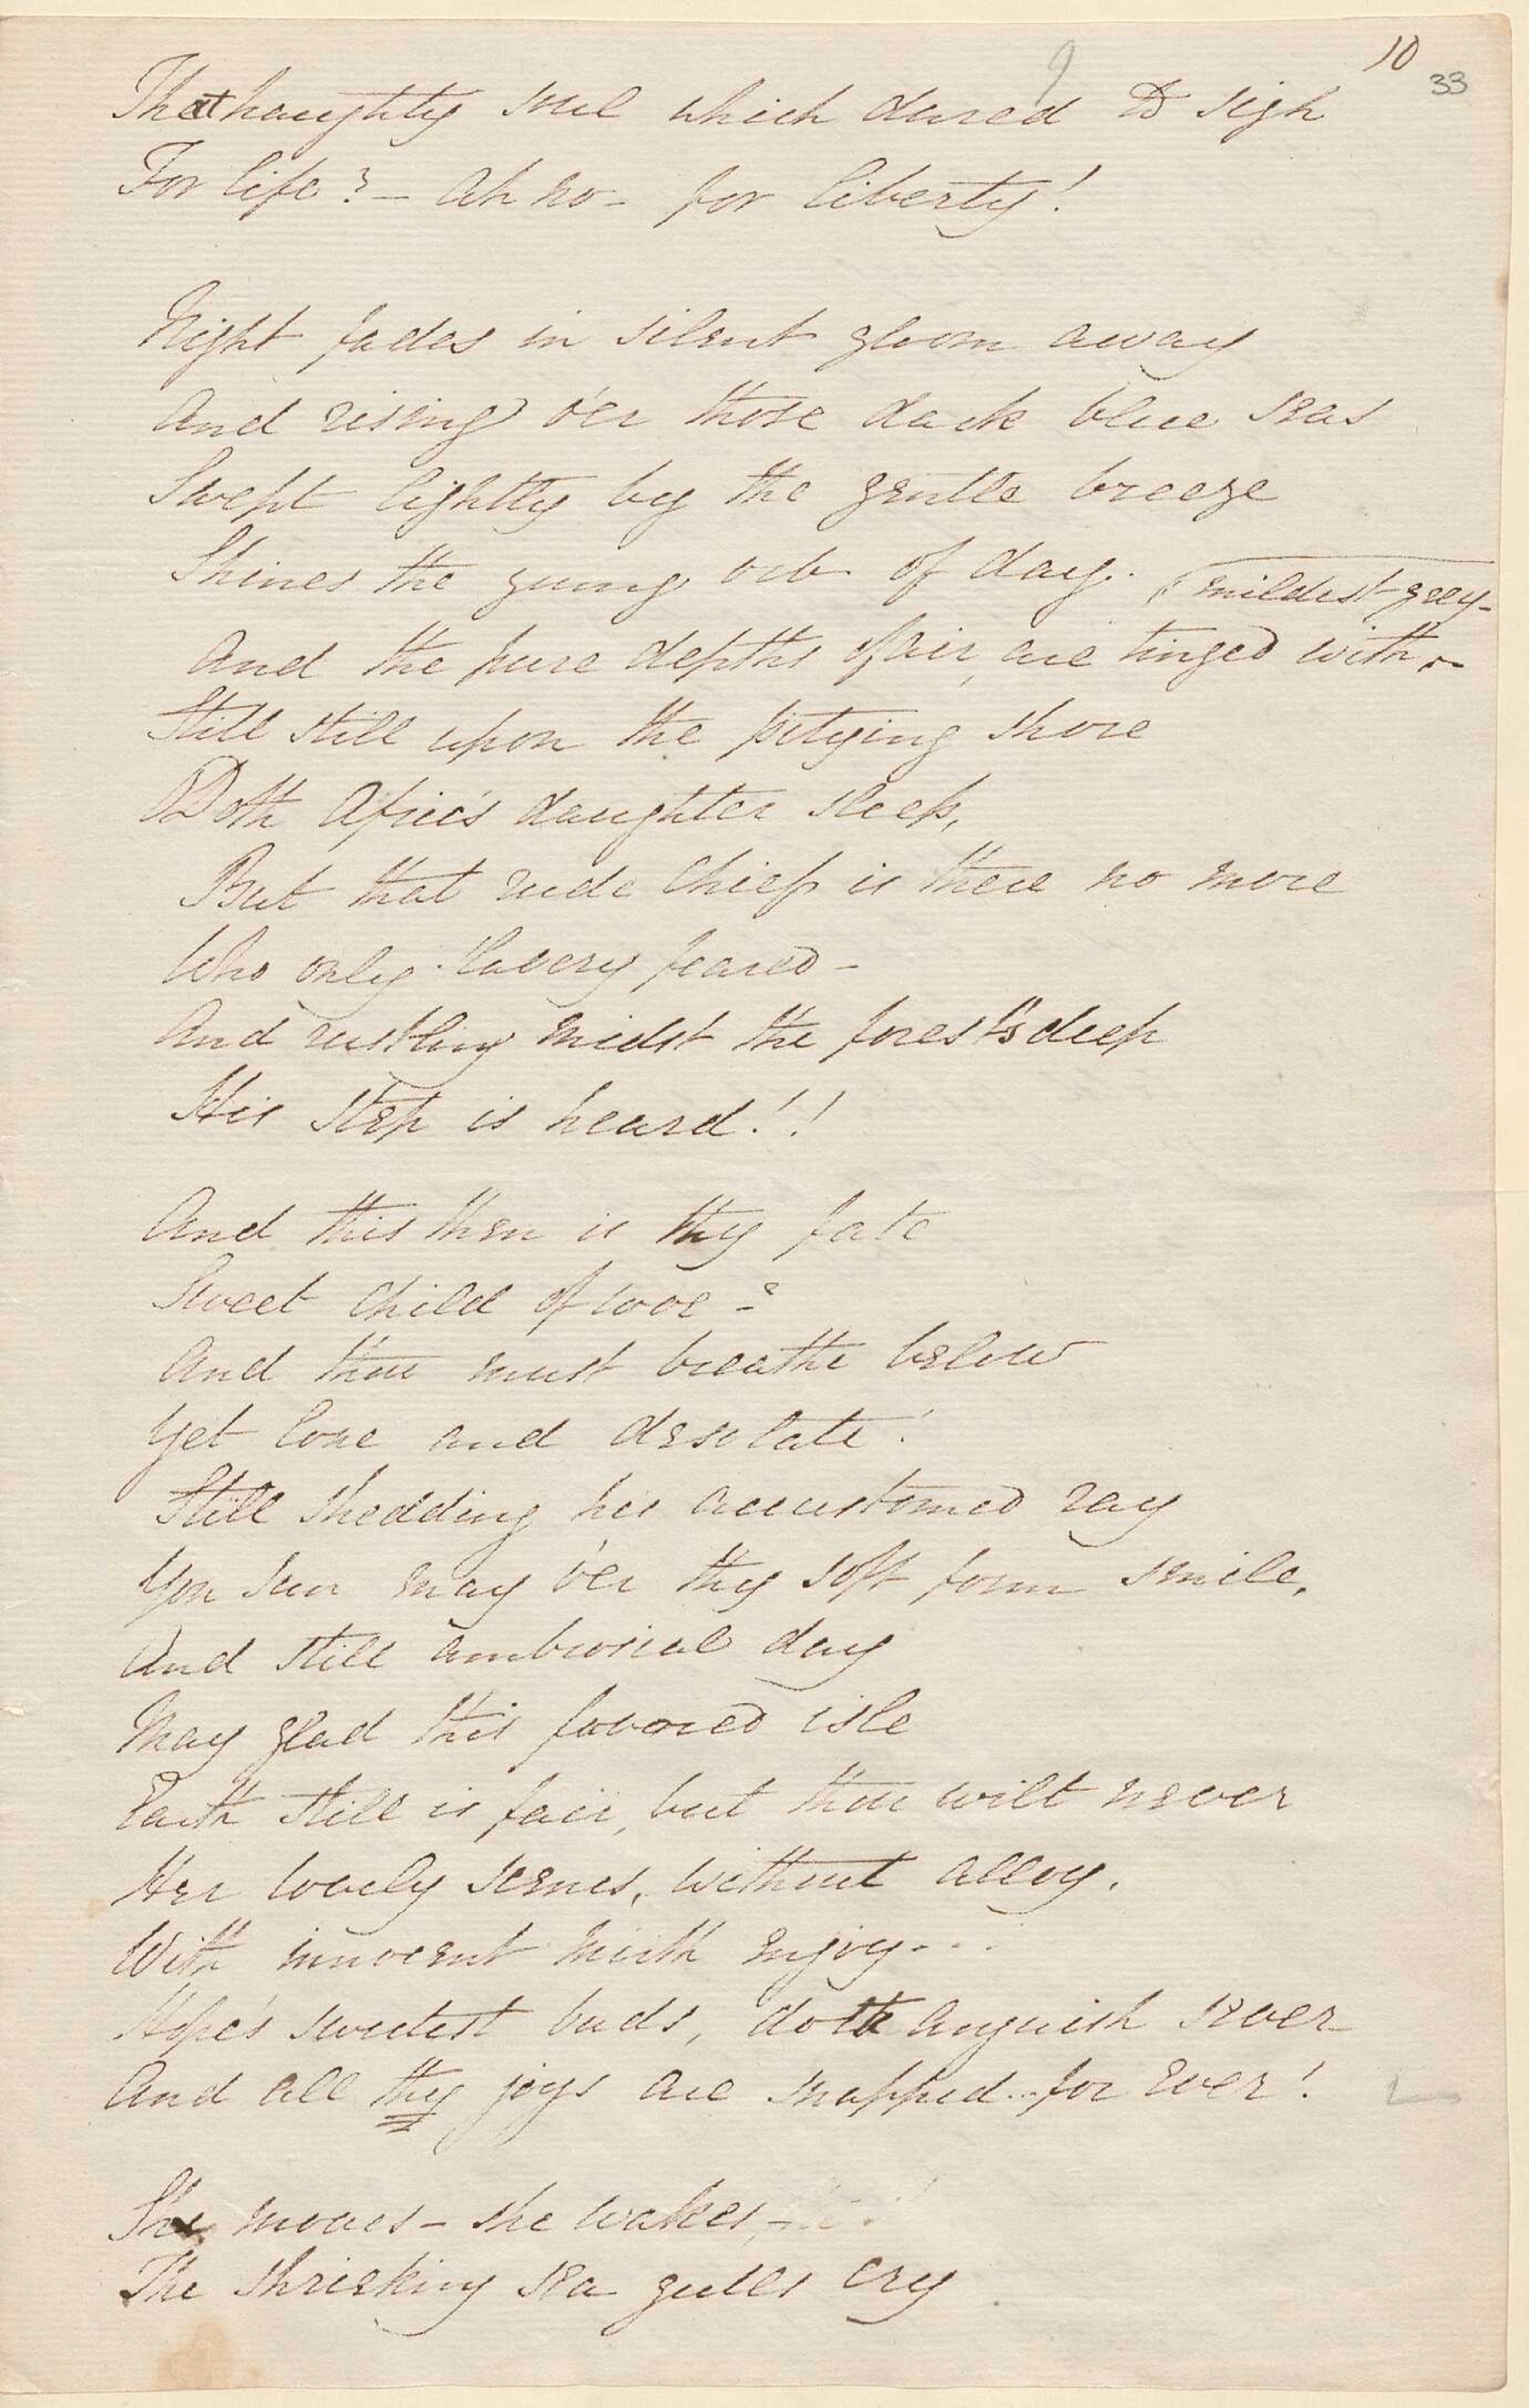 10
33
9
That haughty soul which dared to sigh
For life? – Ah no – for liberty!
Night fades in silent gloom away
And rising o'er those dark blue seas
Swept lightly by the gentle breeze
Shines the young orb of day.
mildest grey –
And the pure depths of air, are tinged with
Still still upon the pitying shore
Doth Afric's daughter sleep,
But that rude Chief is there no more
Who only slavery feared –
And rustling midst the forest's deep
His step is heard!!
And this then is thy fate
Sweet child of woe – ?
And thou must breathe below
Yet lone and desolate!
Still shedding his accustomed ray
Yon sun may o'er thy soft form smile,
And still ambrosial day
May glad this favored isle
Earth still is fair, but thou wilt never
Her lovely scenes, without alloy,
With innocent mirth enjoy - - -
Hope's sweetest buds, doth anguish sever –
And all thy joys are snapped... for ever!
She moves – she wakes, –
The shrieking sea gulls cry